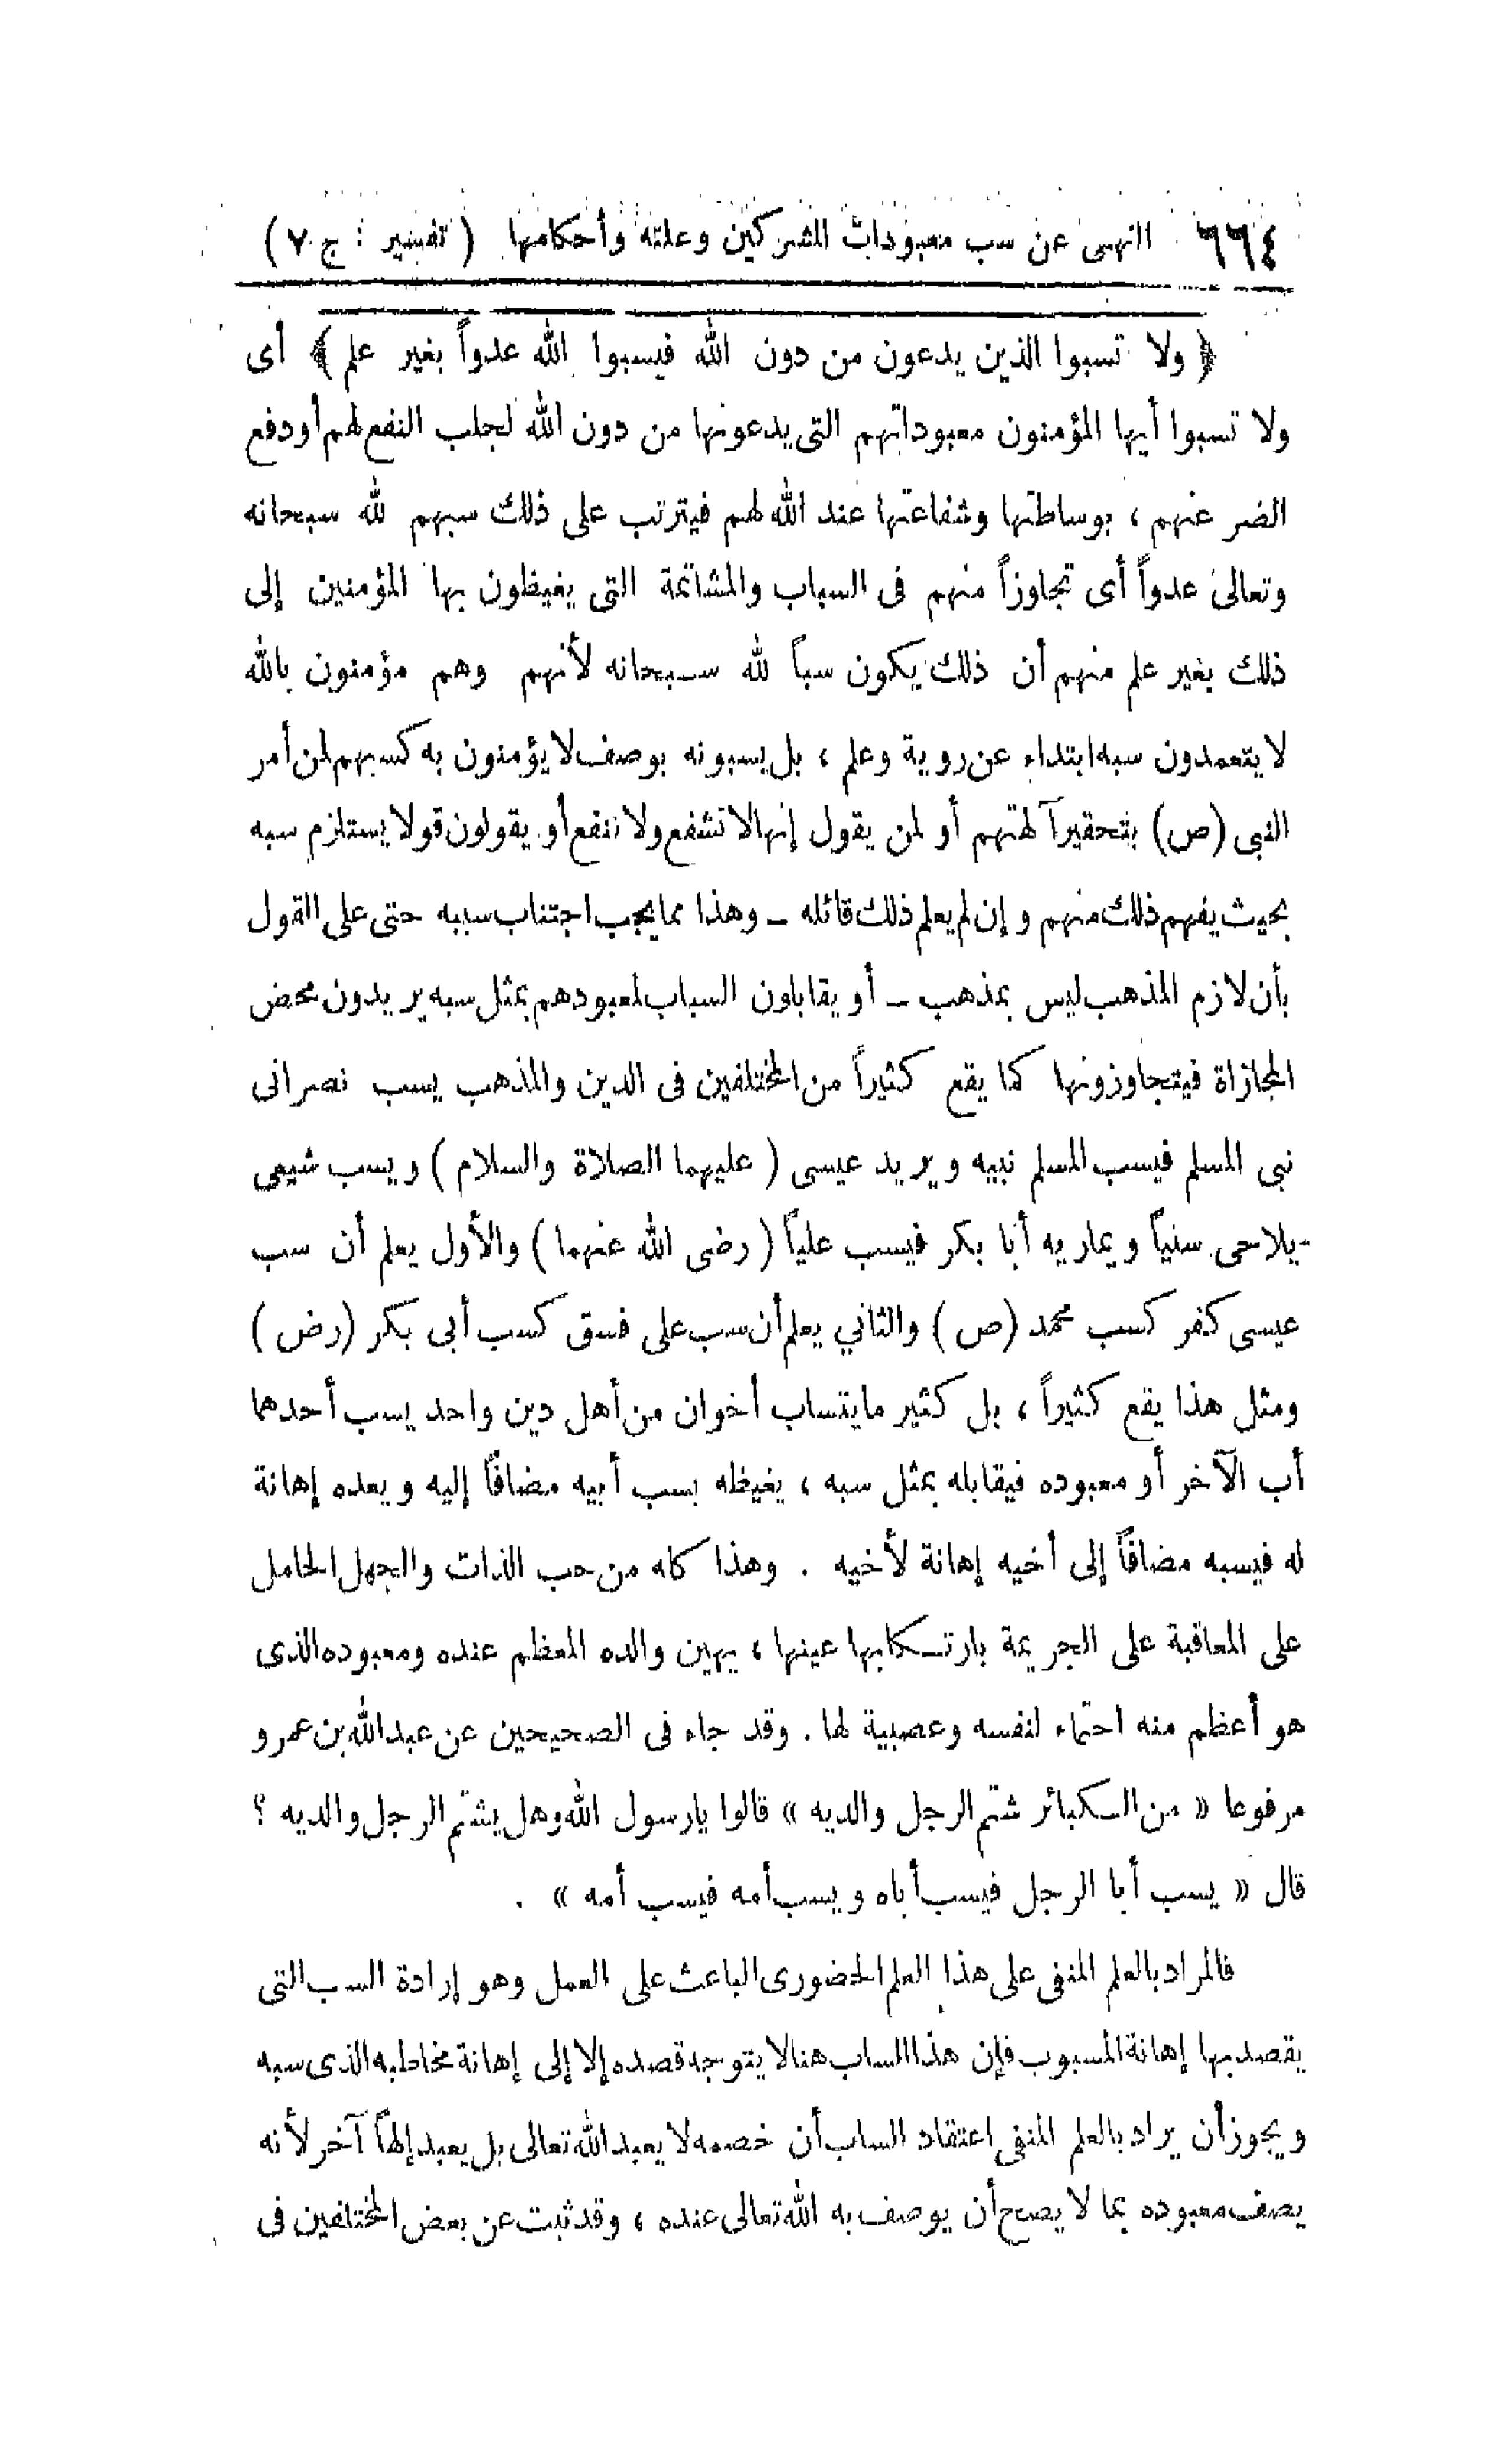 ٦٦٤ النهى عن سب معبودات المشركين وعلته وأحكامها ( تفسير : ج ٧ )
﴿ ولا تسبوا الذين يدعون من دون الله فيسبوا الله عدواً بغير علم ﴾ أى
ولا تسبوا أيها المؤمنون معبوداتهم التى يدعونها من دون الله لجلب النفع لهم أو دفع
الضر عنهم ، بوساطتها وشفاعتها عند الله لهم فيترتب على ذلك سبهم لله سبحانه
وتعالى عدواً أى تجاوزاً منهم فى السباب والمشاتمة التى يغيظون بها المؤمنين إلى
ذلك بغير علم منهم أن ذلك يكون سباً لله سبحانه لأنهم وهم مؤمنون بالله
لا يتعمدون سبه ابتداء عن روية وعلم ، بل يسبونه بوصف لا يؤمنون به كسبهم لمن أمر
النبى (ص) بتحقير آلهتهم أو لمن يقول إنها لا تشفع ولا تنفع أو يقولون قولا يستلزم سبه
بحيث يفهم ذلك منهم و إن لم يعلم ذلك قائله ــ وهذا مما يجب اجتناب سببه حتى على القول
بأن لازم المذهب ليس بمذهب ــ أو يقابلون الساب لمعبودهم بمثل سبه يريدون محض
المجازاة فيتجاوزونها كما يقع كثيراً من المختلفين فى الدين والمذهب يسب نصرانى
نبى المسلم فيسب المسلم نبيه و يريد عيسى ( عليهما الصلاة والسلام ) و يسب شيعى
يلاحى سنياً و يماريه أبا بكر فيسب علياً ( رضى الله عنهما ) والأول يعلم أن سب
عيسى كفر كسب محمد (ص) والثاني يعلم أن سب على فسق كسب أبى بكر (رض)
ومثل هذا يقع كثيراً ، بل كثير ما يتساب أخوان من أهل دين واحد يسب أحدهما
أب الآخر أو معبوده فيقابله بمثل سبه ، يغيظه بسب أبيه مضافاً إليه و يعده إهانة
له فيسبه مضافاً إلى أخيه إهانة لأخيه . وهذا كله من حب الذات والجهل الحامل
على المعاقبة على الجريمة بارتكابها عينها ، يهين والده المعظم عنده ومعبوده الذى
هو أعظم منه احتماء لنفسه وعصبية لها . وقد جاء فى الصحيحين عن عبدالله بن عمرو
مرفوعا « من الكبائر شتم الرجل والديه » قالوا يارسول الله وهل يشتم الرجل والديه ؟
قال « يسب أبا الرجل فيسب أباه و يسب أمه فيسب أمه » .
فالمراد بالعلم المنفى على هذا العلم الحضورى الباعث على العمل وهو إرادة السب التى
يقصد بها إهانة المسبوب فإن هذا الساب هنا لا يتوجه قصده إلا إلى إهانة مخاطبه الذى سبه
و يجوز أن يراد بالعلم المنفى اعتقاد الساب أن خصمه لا يعبد الله تعالى بل يعبد إلهاً آخر لأنه
يصف معبوده بما لا يصح أن يوصف به الله تعالى عنده ، وقد ثبت عن بعض المختلفين فى